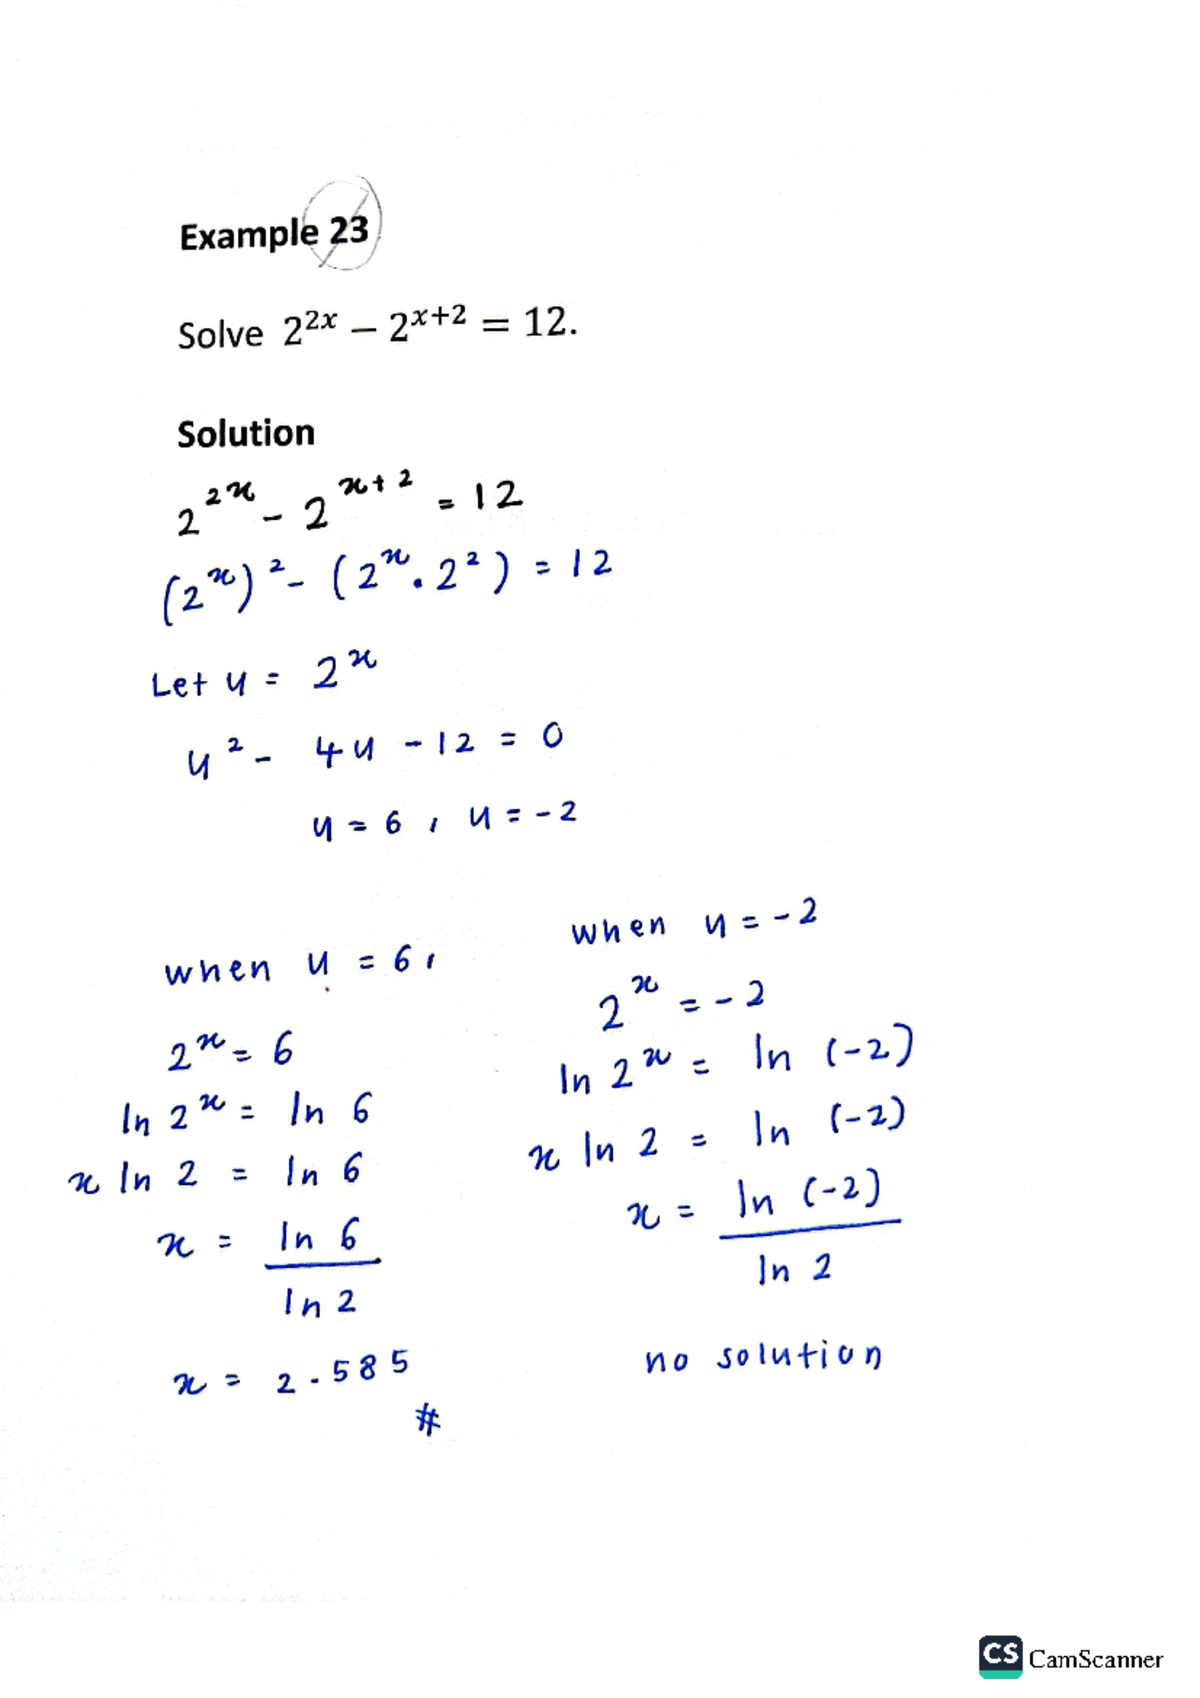 Example 23
Solve 2^{2x} − 2^{x+2} = 12.
Solution
2^{2x} - 2^{x+2} = 12
(2^x)^2 - (2^x . 2^2) = 12
Let u = 2^x
u^2 - 4u - 12 = 0
u = 6 , u = -2
when u = 6,
2^x = 6
ln 2^x = ln 6
x ln 2 = ln 6
x = ln 6 / ln 2
x = 2.585
#
when u = -2
2^x = -2
ln 2^x = ln (-2)
x ln 2 = ln (-2)
x = ln (-2) / ln 2
no solution
CS CamScanner